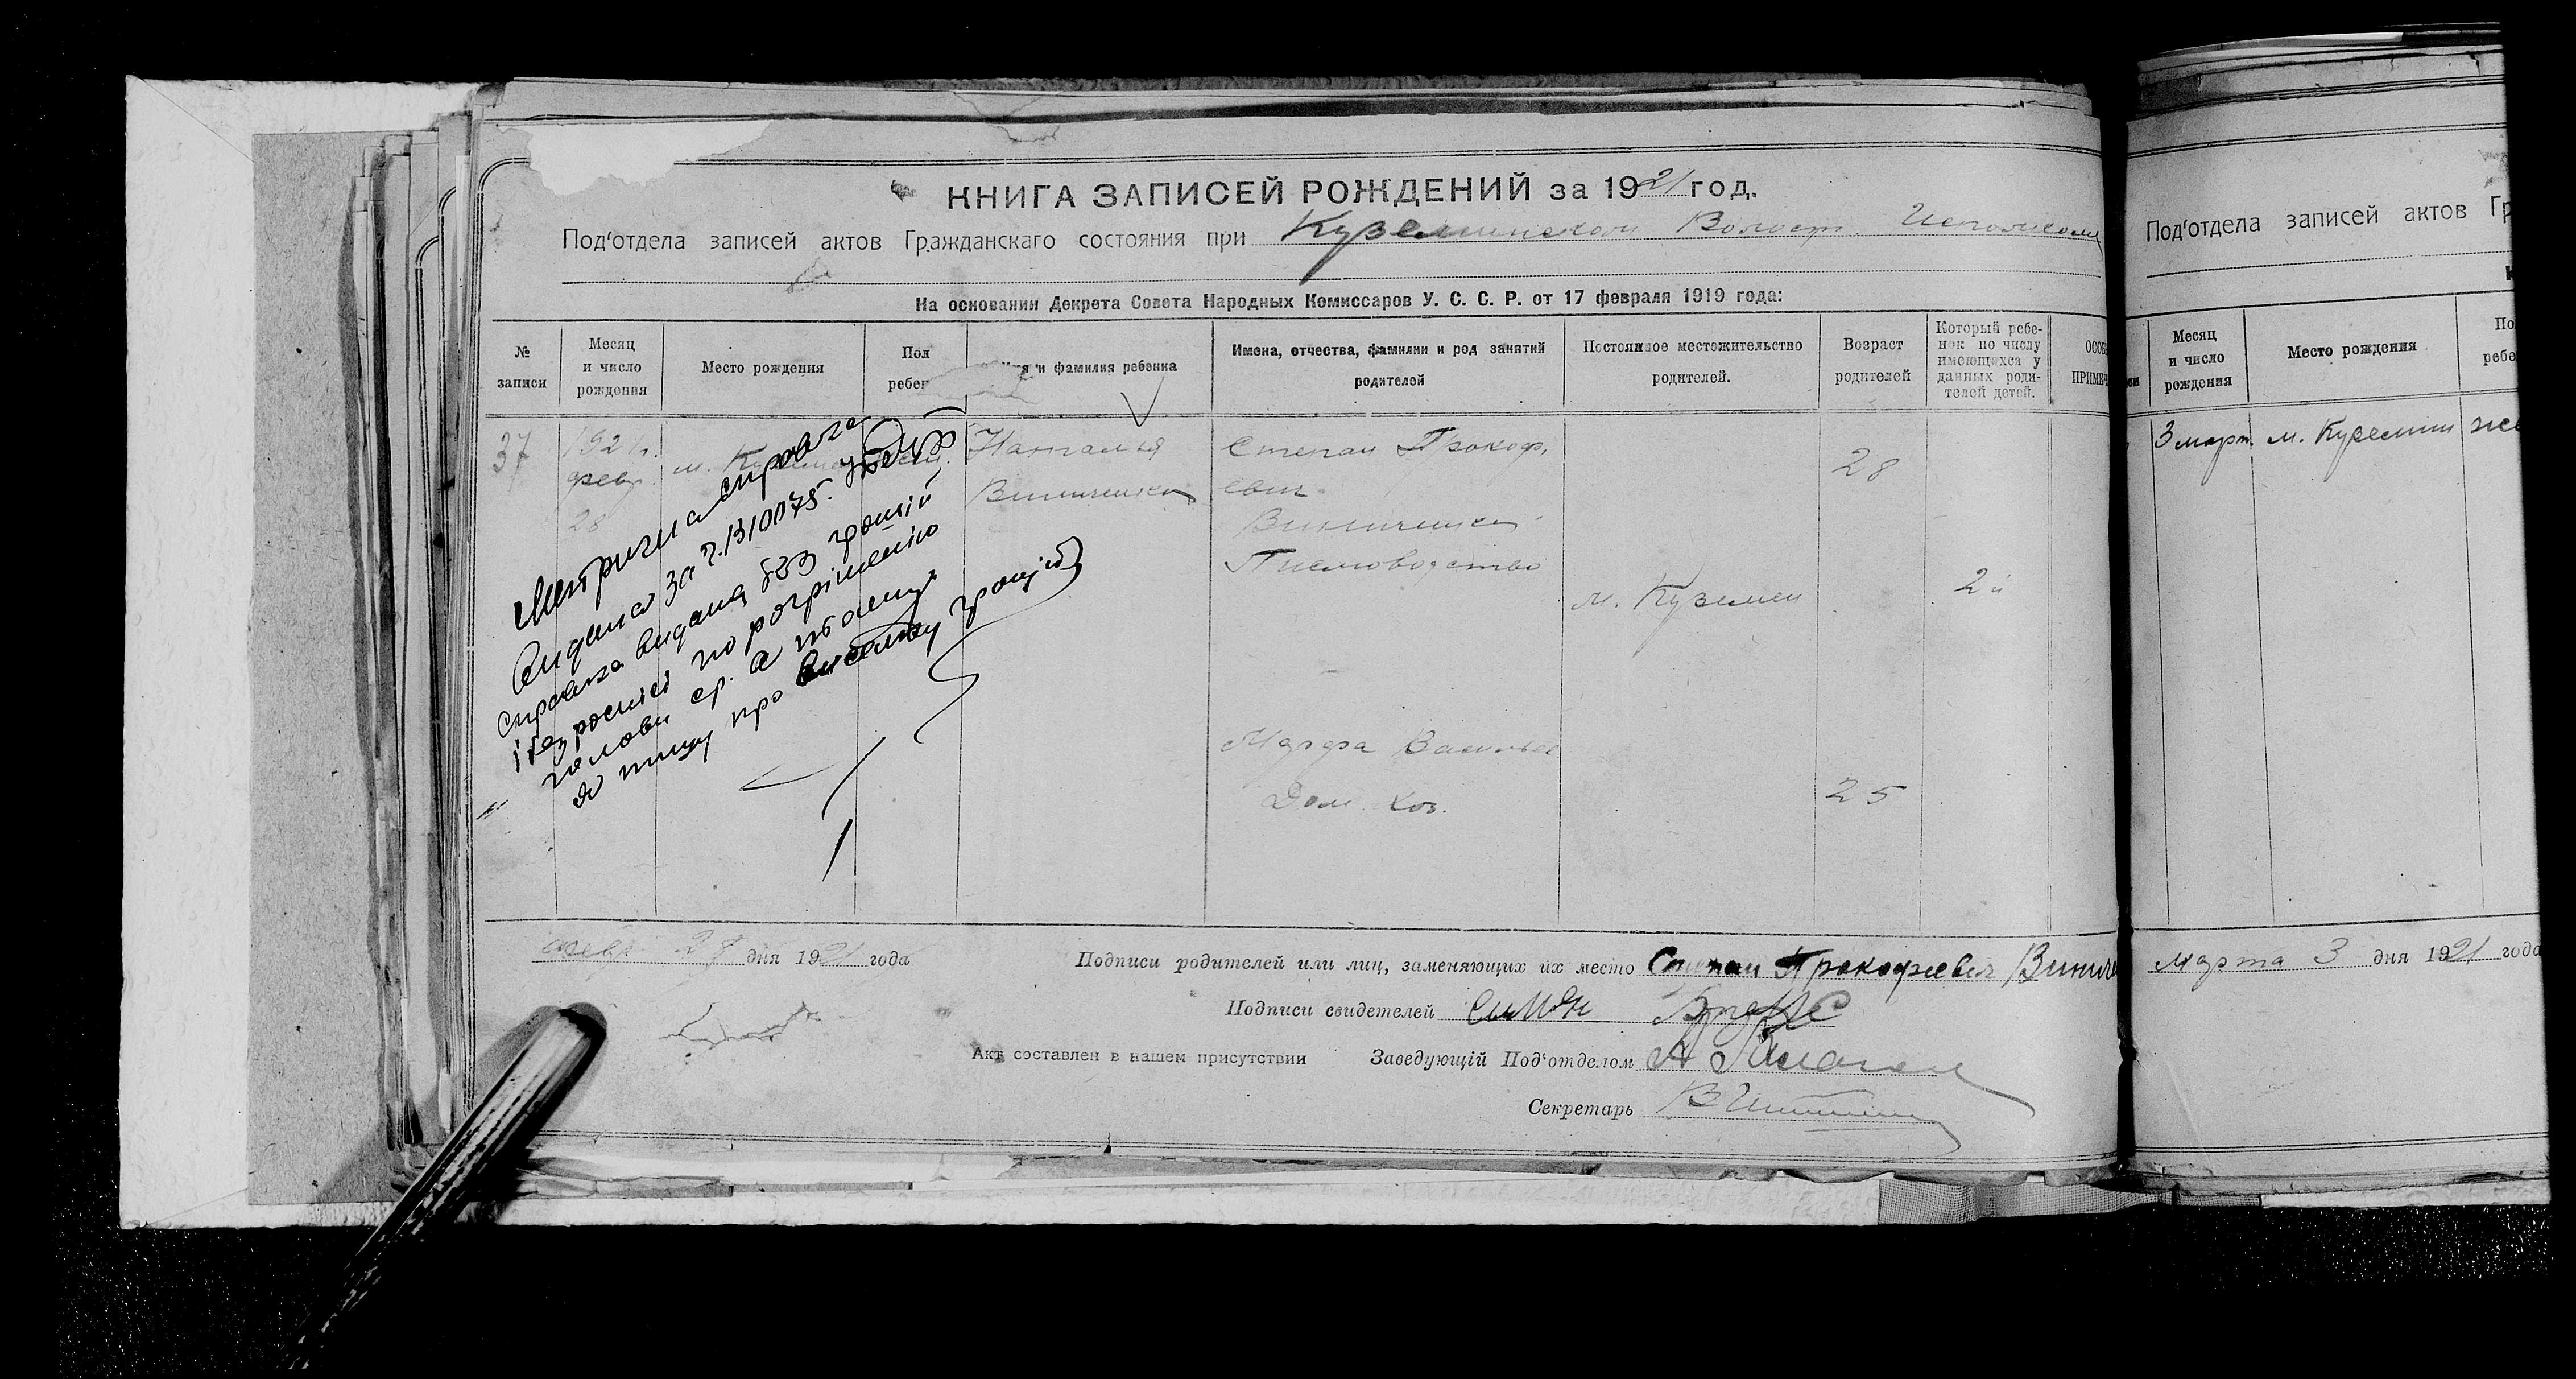 КНИГА ЗАПИСЕЙ РОЖДЕНИЙ за 1921 год.
Под'отдела записей актов Гражданскаго состояния при Куземинском Волост Исполкоме
На основании Декрета Совета Народных Комиссаров У. С. С. Р. от 17 февраля 1919 года:
№ записи
Месяц и число рождения
Место рождения
Пол ребен
и фамилия ребенка
Имена, отчества, фамилии и род занятий родителей
Постоянное местожительство родителей.
Возраст родителей
Который ребе-
нок по числу
имеющихся у
данных роди-
телей детей.
ОСОБ
ПРИМЕЧ
37
1921г.
февр.
28
м.
Наталья
Винниченко
Степан Прокоф.
евич
Винниченко
Писмоводство
м. Куземен
28
2й
Марфа Василье
Дом. хоз.
25
Метрична справка
видана за ч. 1310075.
справка видана без грошій
по розрішенію
голови ср. а
про висилку грошів
февр 28 дня 1921 года
Подписи родителей или лиц, заменяющих их место Степан Прокофиевич Винниче
Подписи свидетелей Симон
Акт составлен в нашем присутствии Заведующій Под'отделом А
Секретарь В
Под'отдела записей актов Гр
Месяц и число рождения
Место рождения
По
ребе
3 март. м. Куземин же
Марта 3 дня 1921 года